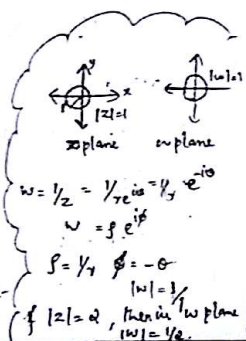 y
x
|z|=1
|w|=1
z plane
w plane
w = 1/z = 1/re^{iθ} = 1/r e^{-iθ}
w = ρ e^{iϕ}
ρ = 1/r ϕ = -θ
|w| = 1/1
if |z| = 2, then in w plane
|w| = 1/2.